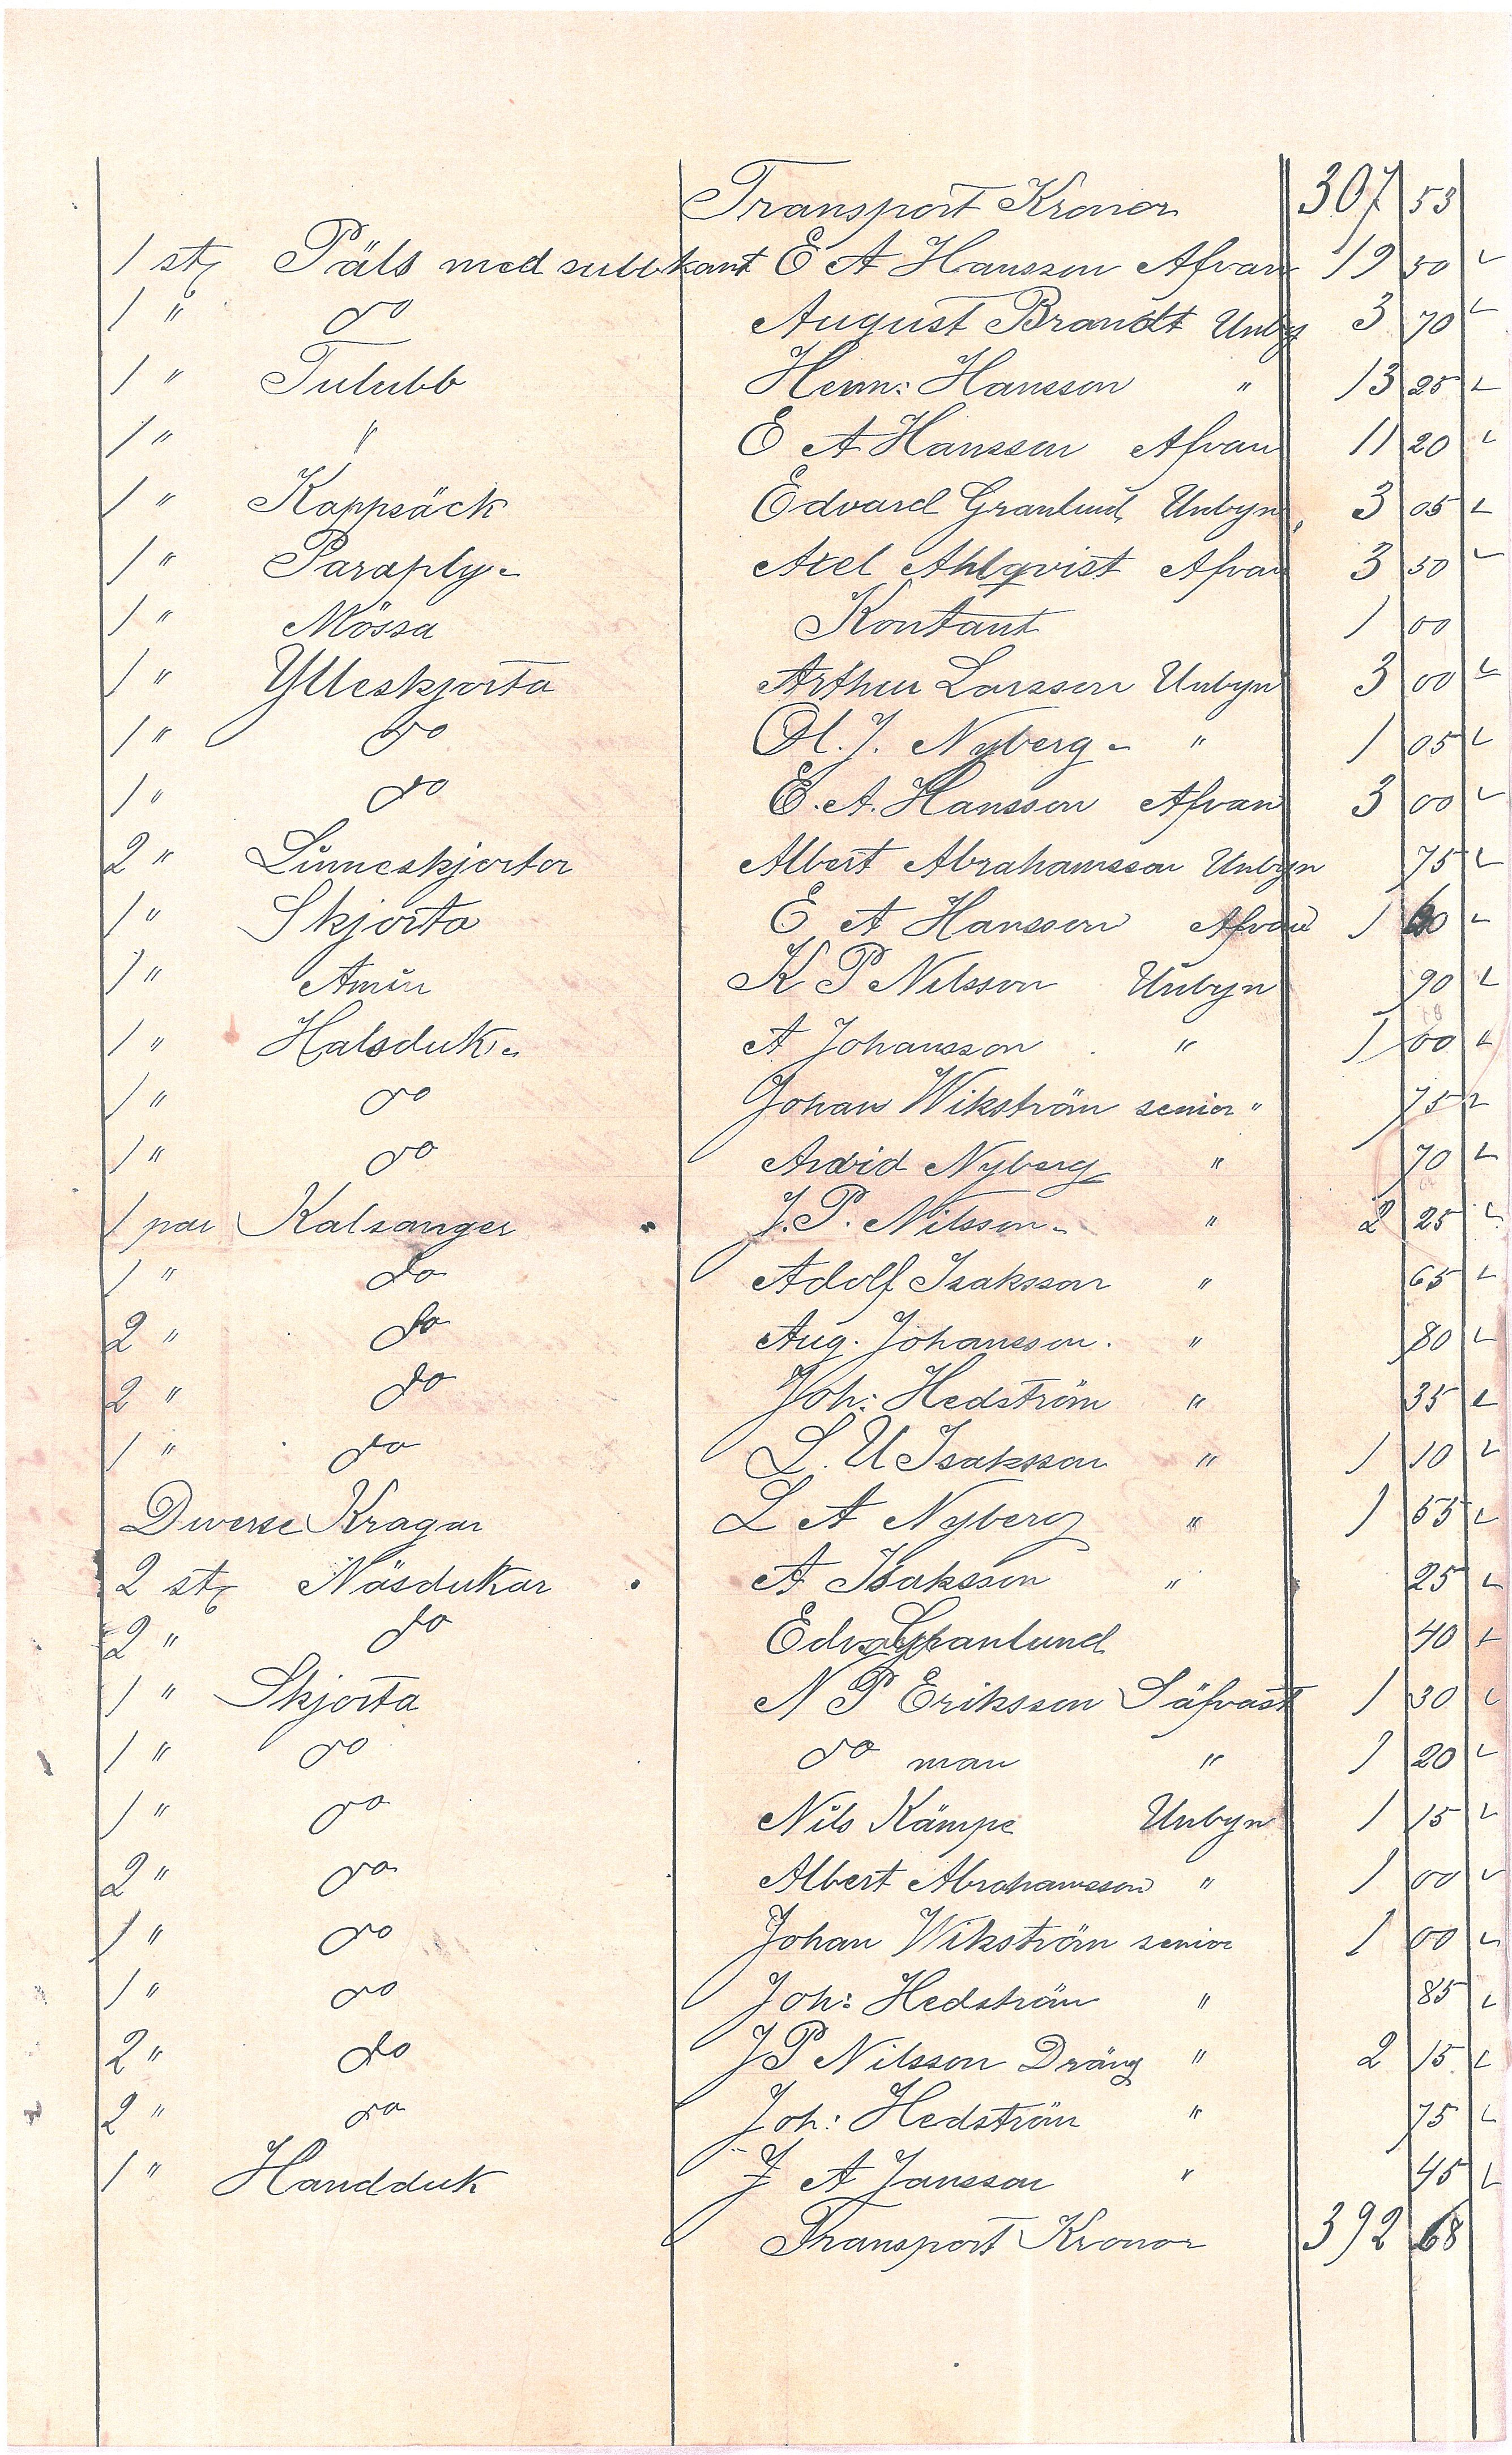 Transport Kronor 307 53
1 st Päls med subbkant E A Hansson Afvan 19 50
1 " do August Brandt Unby 3 70
1 " Tulubb Herm: Hansson " 13 25
1 " " E A Hansson Afvan 11 20
1 " Kappsäck Edvard Granlund Unbyn 3 05
1 " Paraply Axel Ahlqvist Afvan 3 50
1 " Mössa Kontant 1 00
1 " Ylleskjorta Arthur Larsson Unbyn 3 00
1 " do Ol. J. Nyberg " 1 05
1 " do E. A. Hansson Afvan 3 00
2 " Linneskjortor Albert Abrahamsson Unbyn 75
1 " Skjorta E A Hansson Afvan 1
1 " K P Nilsson Unbyn 90
1 " Halsduk A Johansson " 1 00
1 " do Johan Wikström senior " 75
1 " do Arvid Nyberg " 70
1 par Kalsonger J. P. Nilsson " 2 25
1 " do Adolf Isaksson " 65
2 " do Aug. Johansson. " 80
2 " do Joh: Hedström " 35
1 " do L. U Isaksson " 1 10
Diverse Kragar L A Nyberg " 1 55
2 st Näsdukar A Isaksson " 25
2 " do Edv Granlund 40
1 " Skjorta N P Eriksson Säfvast 1 30
1 " do do man " 1 20
1 " do Nils Kämpe Unbyn 1 15
2 " do Albert Abrahamsson " 1 00
1 " do Johan Wikström senior 1 00
1 " do Joh: Hedström " 85
2 " do J P Nilsson Dräng " 2 15
2 " do Joh: Hedström " 75
1 " Handduk J A Jansson " 45
Transport Kronor 392 68